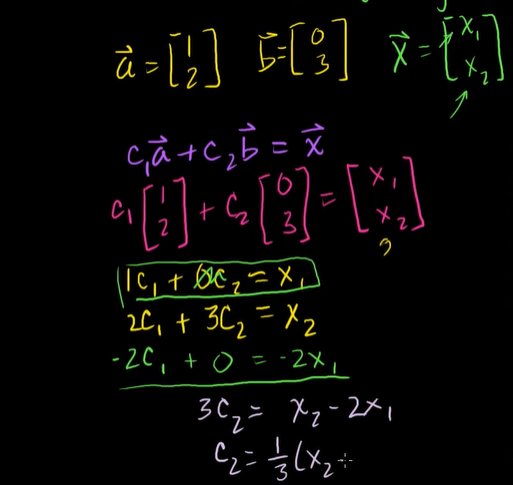 a⃗ = [1 2] b⃗ = [0 3] x⃗ = [x₁ x₂]
c₁a⃗ + c₂b⃗ = x⃗
c₁ [1 2] + c₂ [0 3] = [x₁ x₂]
1c₁ + 0c₂ = x₁
2c₁ + 3c₂ = x₂
-2c₁ + 0 = -2x₁
3c₂ = x₂ - 2x₁
c₂ = 1/3 (x₂